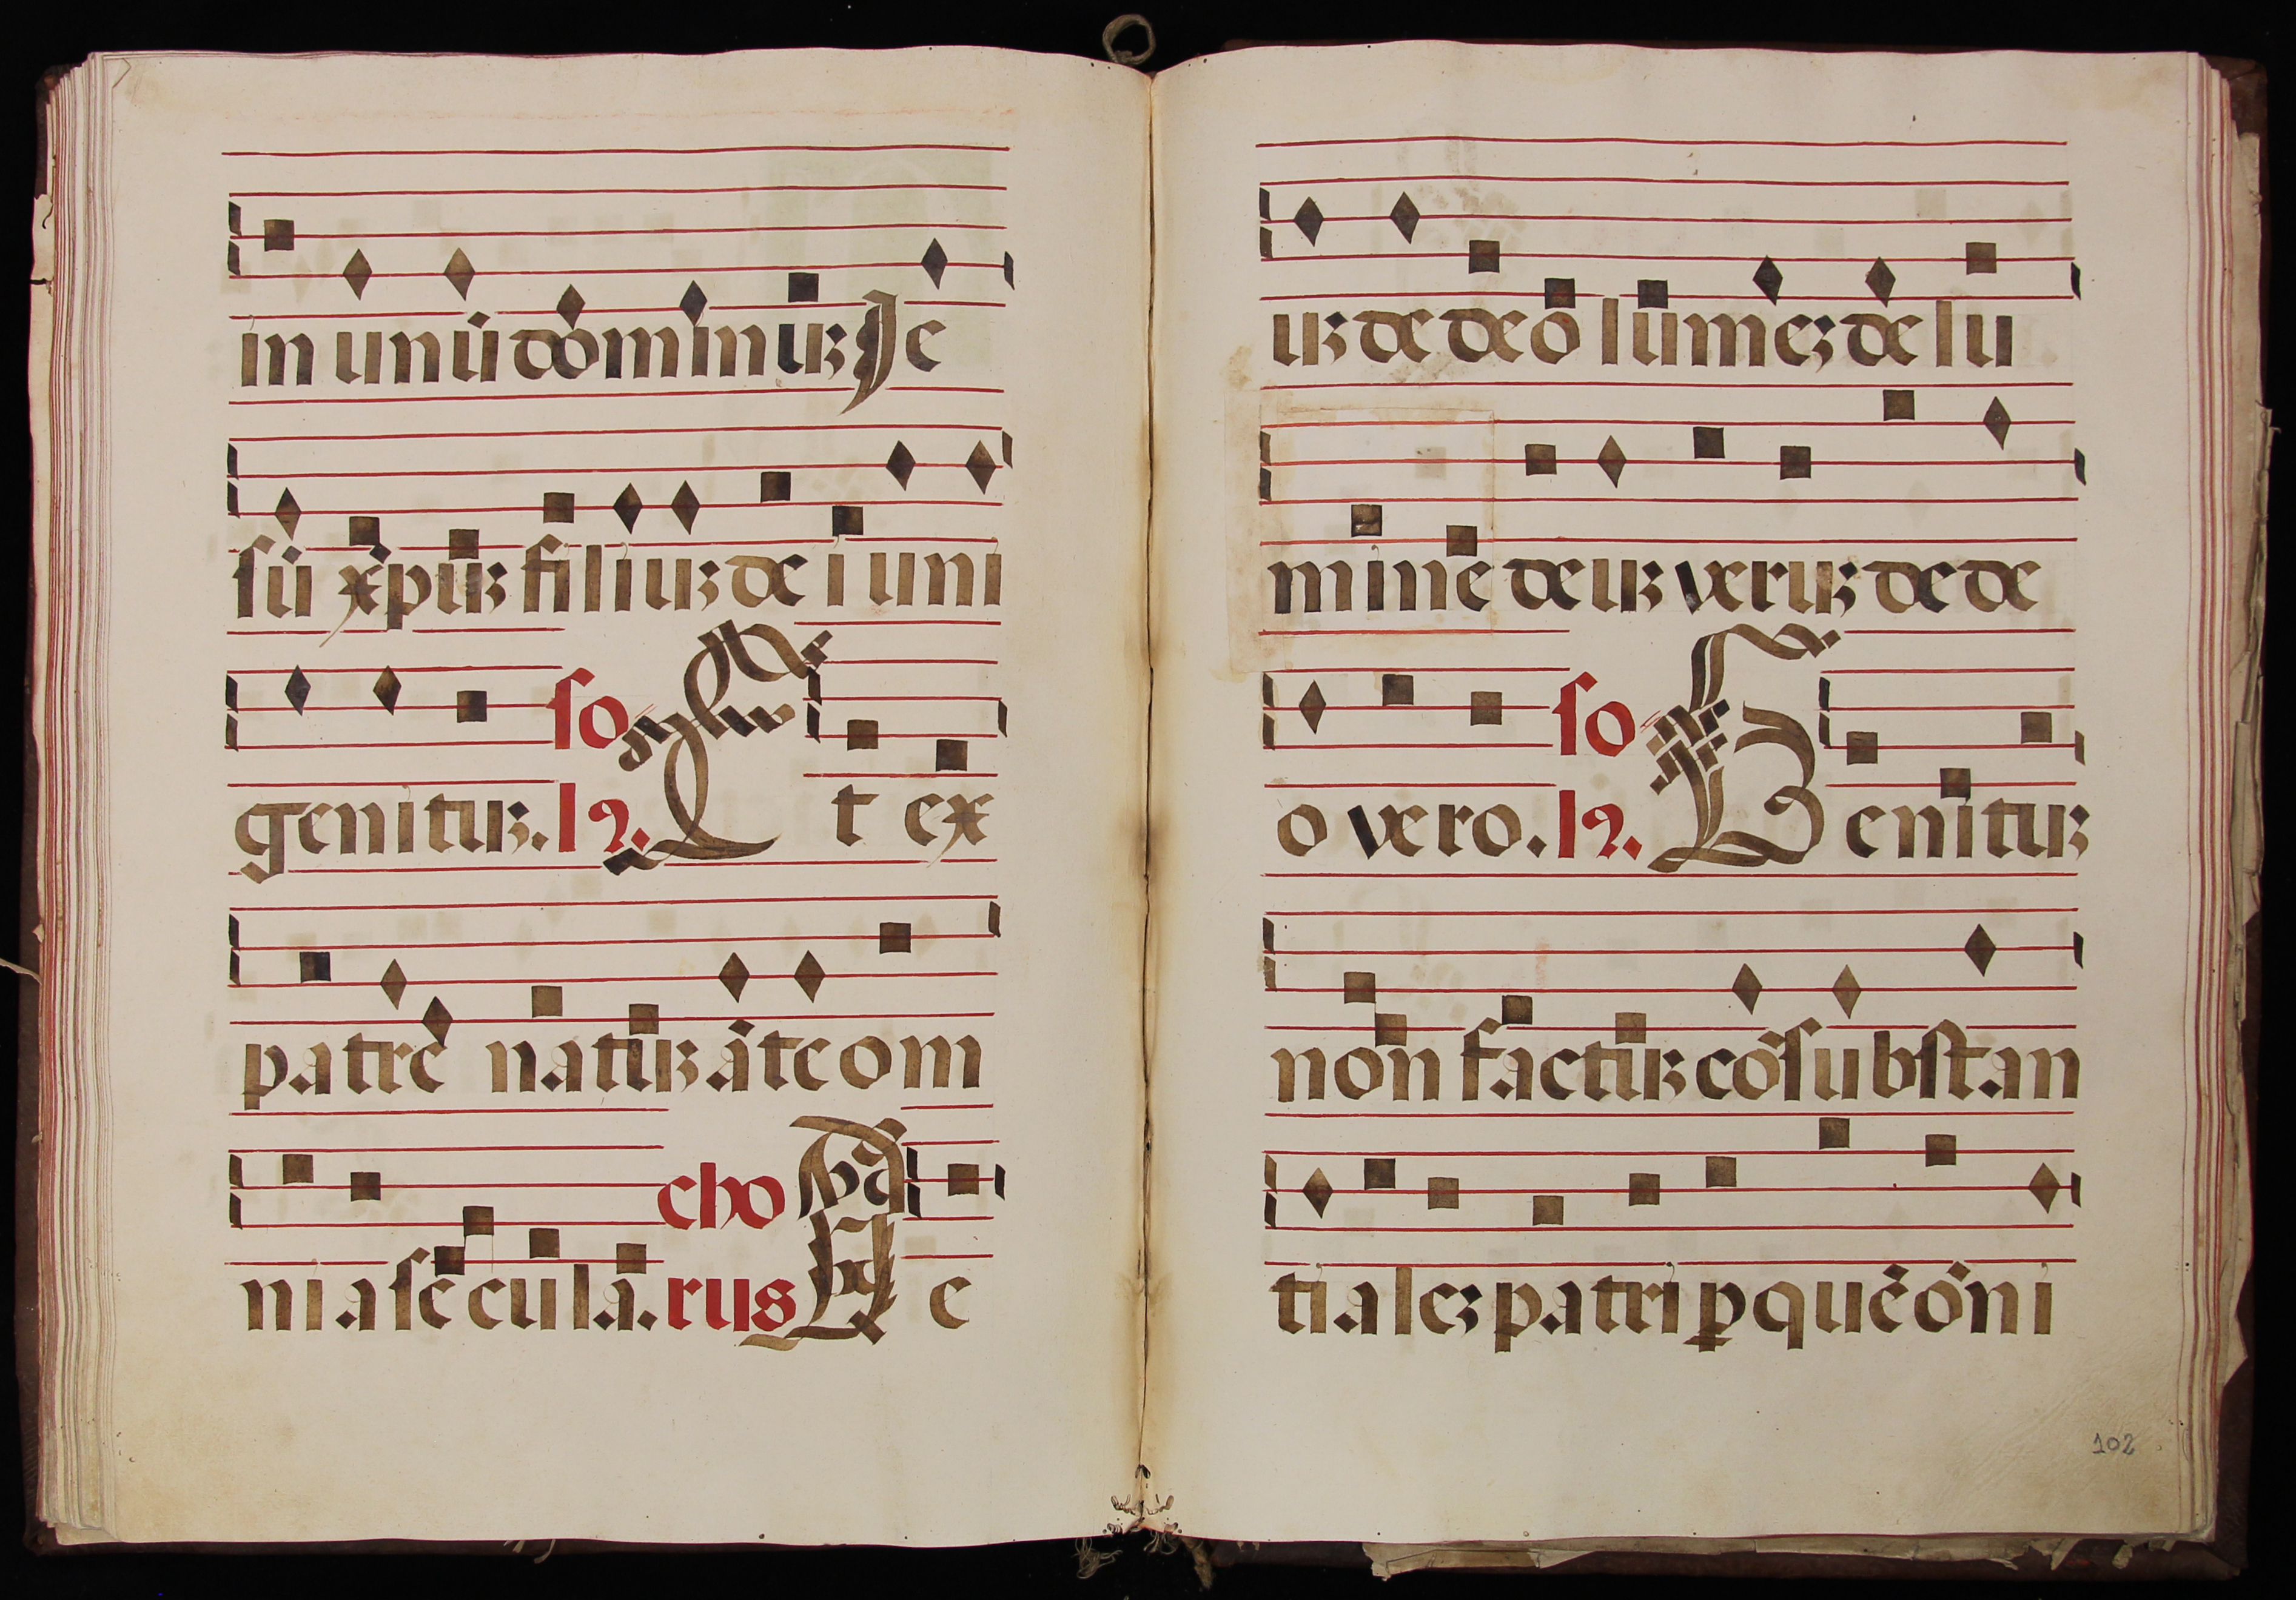 in unū dominuʒ Je
sū xp̄uʒ filiuʒ dei uni
genituʒ. so
lꝰ. Et ex
patrē natuʒ āte om
nia secula. cho
rus De
uʒ de deo lūmeʒ de lu
mine deuʒ veruʒ de de
o vero. so
lꝰ. Genituʒ
non factuʒ cōsubstan
tialeʒ patri ꝑ quē ōni
102